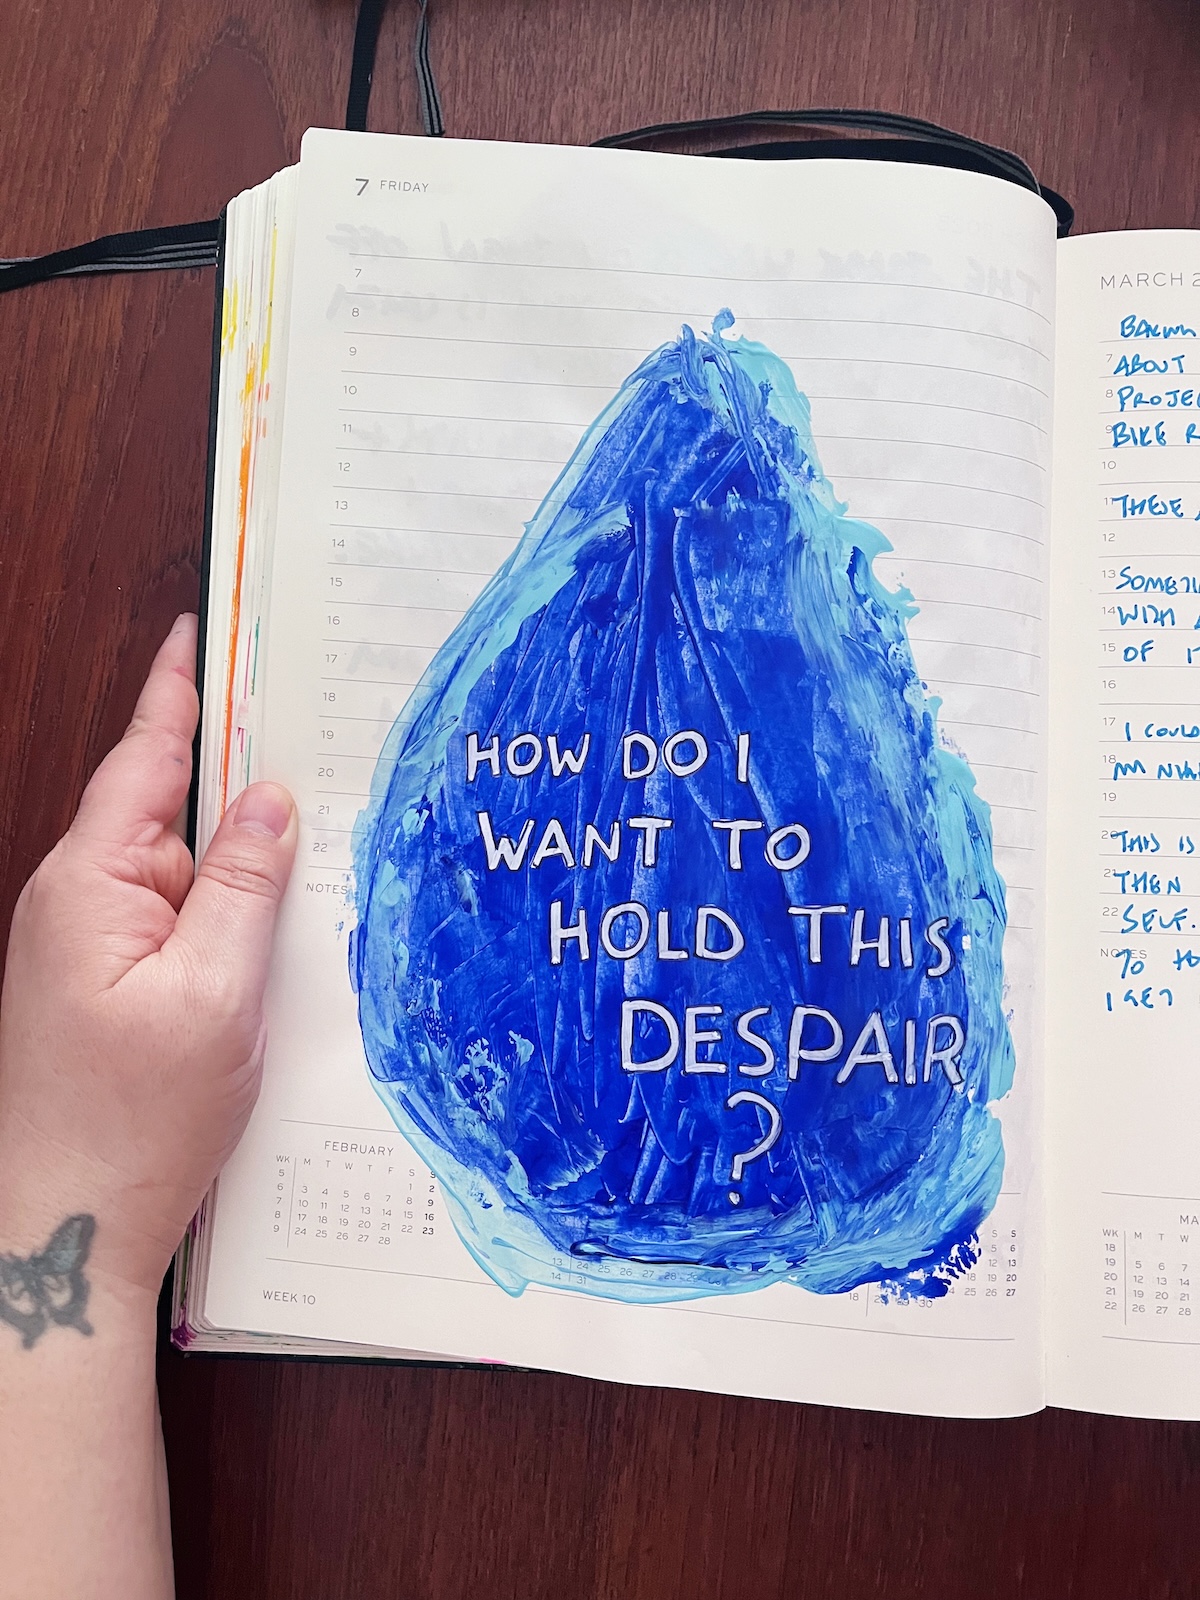 7 FRIDAY
7
8
9
10
11
12
13
14
15
16
17
18
19
20
21
22
NOTES
HOW DO I
WANT TO
HOLD THIS
DESPAIR
?
FEBRUARY
WK M T W T F S S
5 1 2
6 3 4 5 6 7 8 9
7 10 11 12 13 14 15 16
8 17 18 19 20 21 22 23
9 24 25 26 27 28
13 24 25 26 27 28
14 31
S S
5 6
12 13
18 19 20
25 26 27
18 28 29 30
WEEK 10
MARCH 2
7 ABOUT
8
9 BIKE R
10
11 THESE
12
13
14 WITH
15 OF
16
17 I COULD
18
19
20 THIS IS
21 THEN
22 SELF.
NOTES
TO
I GET
MA
WK M T W
18
19 5 6 7
20 12 13 14
21 19 20 21
22 26 27 28